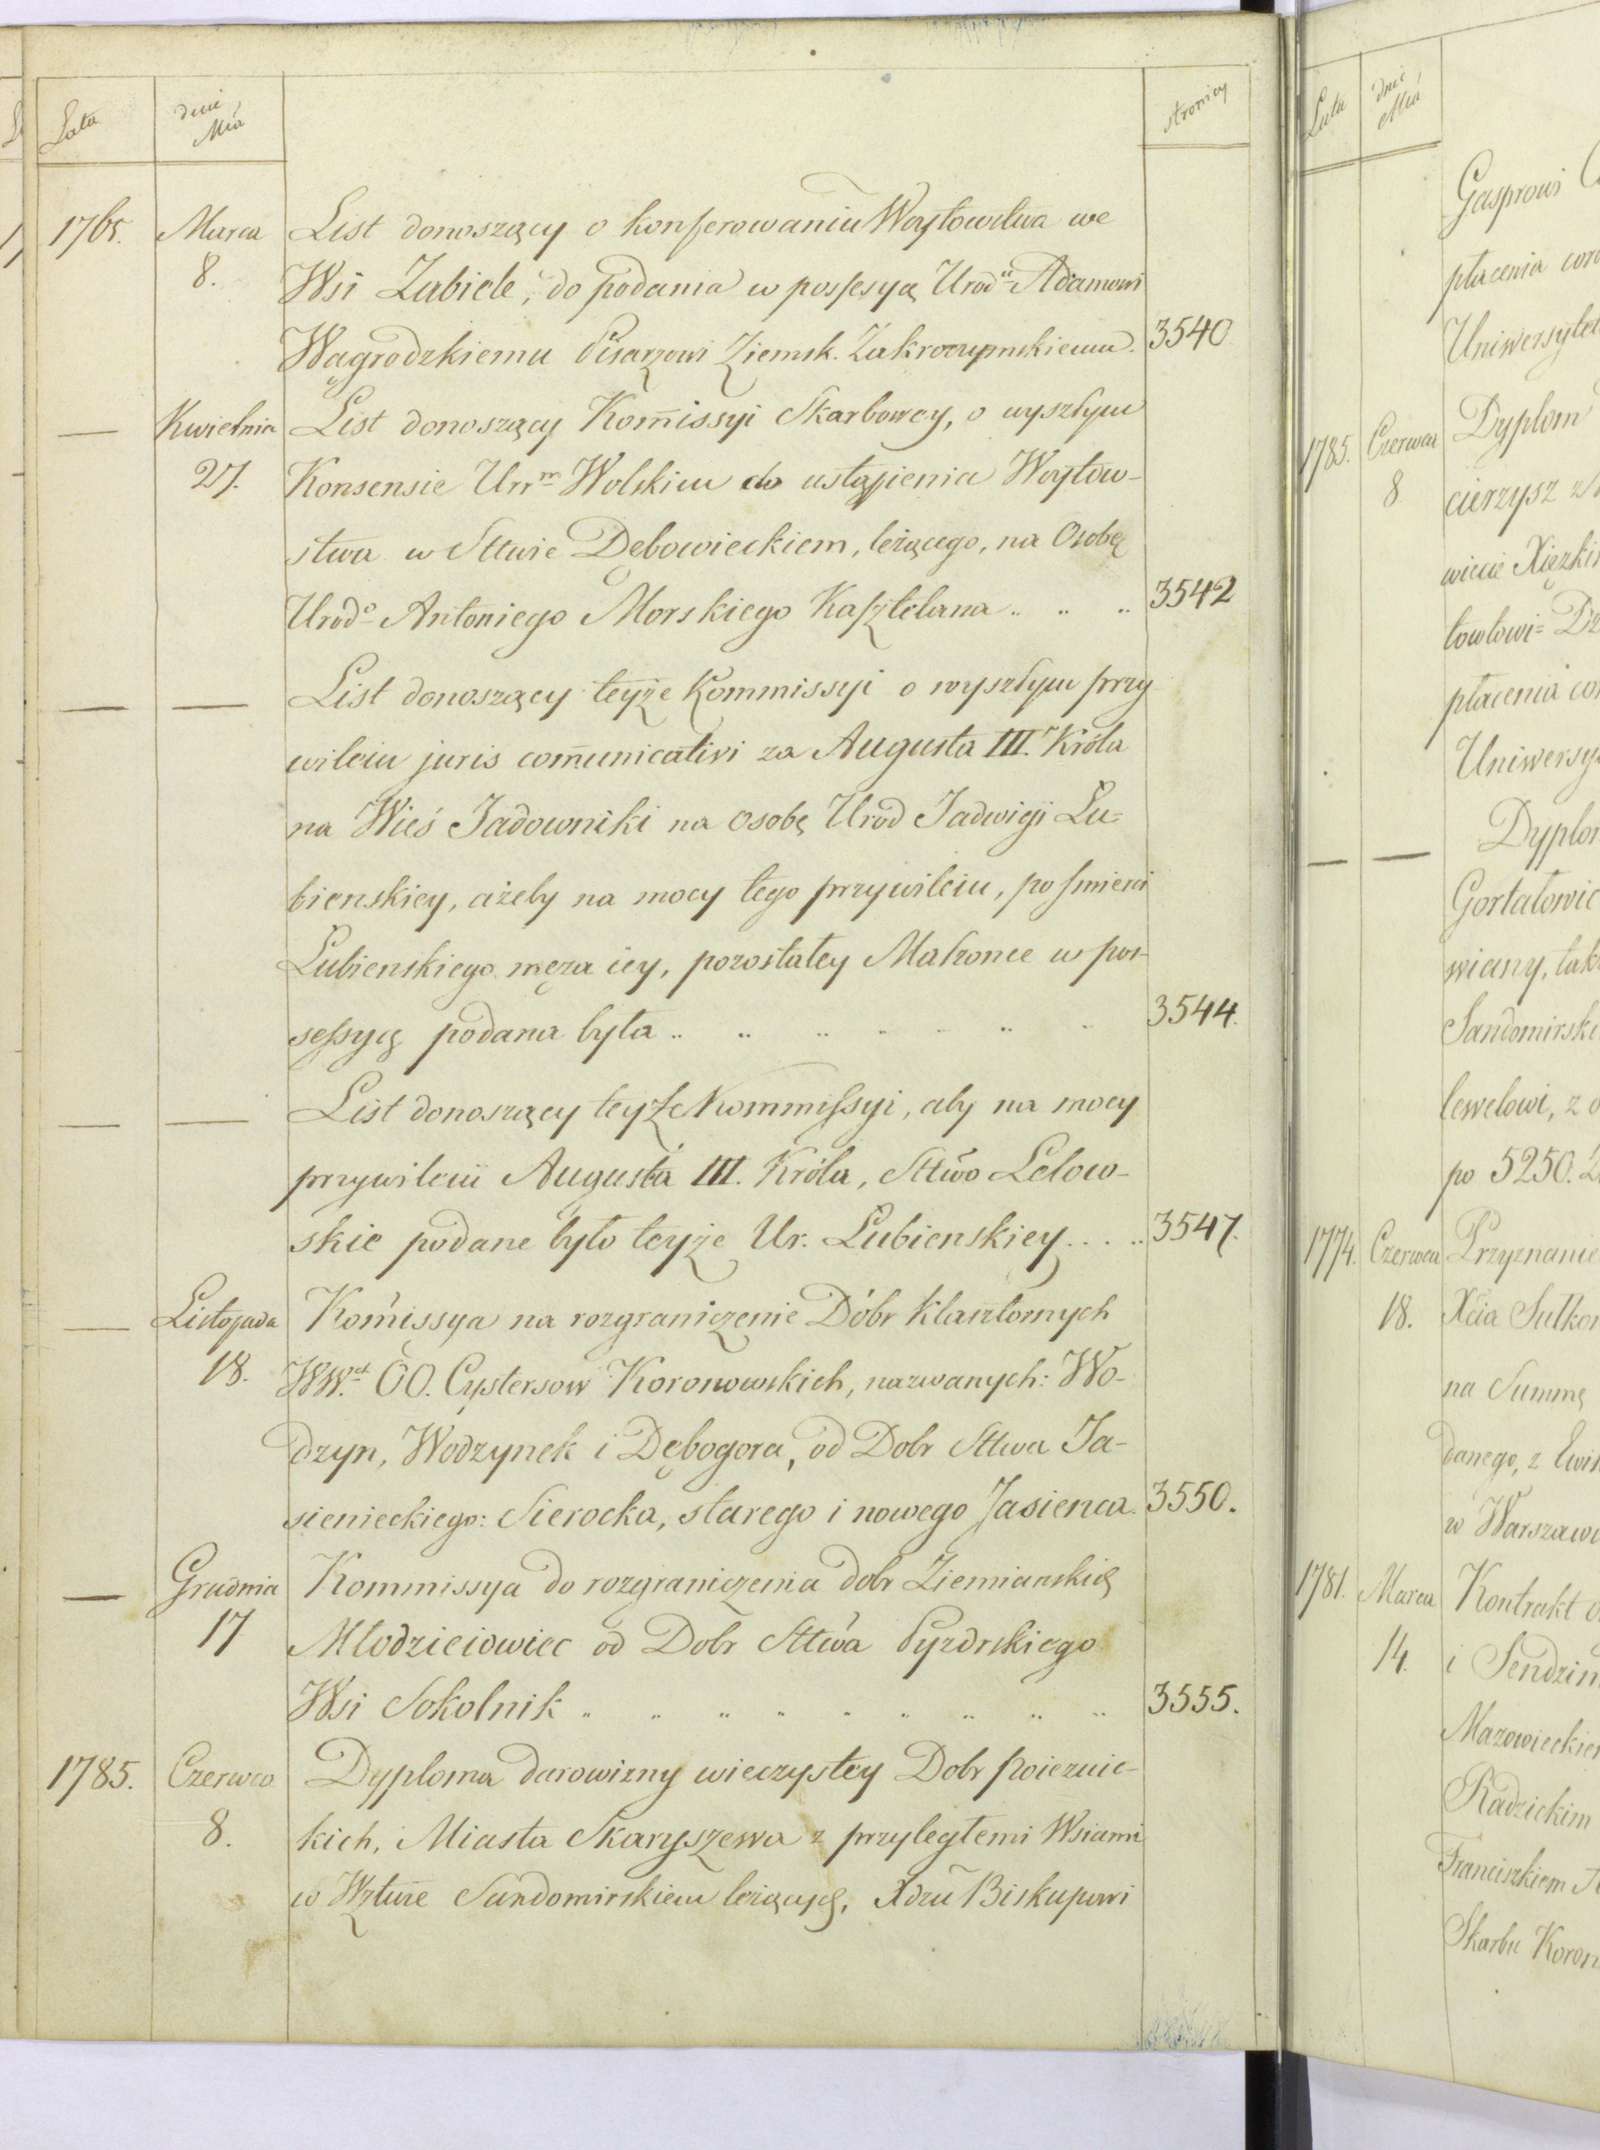 Lata dnie Mià stronicy
1765. Marca List donoszący o konferowaniu Woytowstwa we
8. Wsi Zabiele, do podania w possesyą Urod. Adamowi
Wągrodzkiemu Pisarzowi Ziemsk. Zakroczymskiemu. 3540
— Kwietnia List donoszący Kom̄issyi Skarbowey, o wyszłym
27. Konsensie Urr^m Wolskim do ustąpienia Woytow-
stwa w Sttwie Dębowieckiem, leżącego, na Osobę
Urod^o Antoniego Morskiego Kasztelana .. .. .. 3542
— — List donoszący teyże Kommissyi o wyszłym przy
wileiu juris com̄unicativi za Augusta III. Króla
na Wieś Jadowniki na osobę Urod Jadwigi Lu=
bienskiey, ażeby na mocy tego przywileiu, po smierci
Lubienskiego męża iey, pozostałey Małżonce w pos-
sessyą podana była .. .. .. .. .. .. .. 3544.
— — List donoszący teyże Kommissyi, aby na mocy
przywileiu Augusta III. Króla, Sttwo Lelow-
skie podane było teyże Ur. Lubienskiey . . . .. 3547.
— Listopada Kom̄issya na rozgraniczenie Dóbr klasztornych
18. WW. OO. Cystersow Koronowskich, nazwanych: Wo-
dzyn, Wodzynek i Dębogora, od Dobr Sttwa Ja-
sienieckiego: Sierocka, starego i nowego Jasienca. 3550.
— Grudnia Kommissya do rozgraniczenia dobr Ziemianskich
17 Młodzieiowiec od Dobr Sttwa Pyzdrskiego
Wsi Sokolnik .. .. .. .. .. .. .. .. .. 3555.
1785. Czerwca Dyploma darowizny wieczystey Dobr poiezuic-
8. kich, Miasta Skaryszewa z przyległemi Wsiami
w Wztwie Sandomirskiem leżących, Xdzu Biskupowi
Lata dnie Mià
Gasprowi
płacenia
Uniwersytet
1785. Czerwca Dyplom
8 cierzysz
wiecie
płacenia
Uniwersy
— — Dyplom
wiany, tak
Sandomirski
lewelowi, z
po 5250.
1774. Czerwca Przyznanie
18. Xcia Sułkow
na Summę
danego, z
w Warszawi
1781. Marca Kontrakt
14. i Sendzim
Mazowieckiem
Radzickim
Franciszkiem
Skarbu Koron